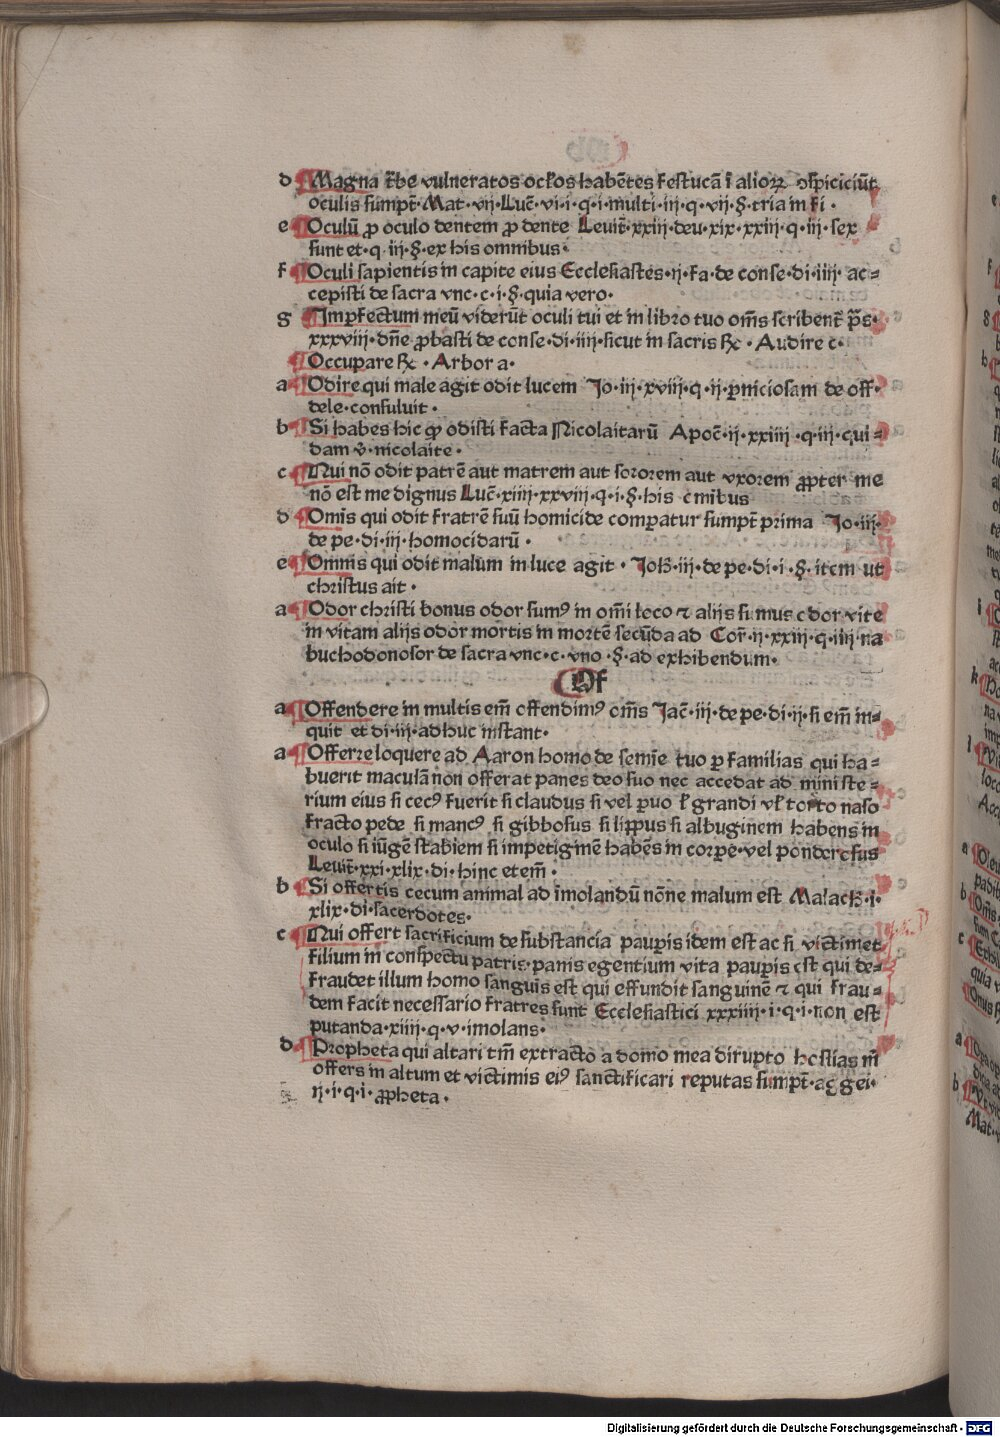 d Magna t̃be vulneratos oc̃los habẽtes festucã ĩ alioꝝ ↄspiciciũt
oculis sumpt̃· Mat·vij·Luc̃·vi·i·q·i·multi·iij·q·vij·§·tria in fi·
e Oculũ ꝓ oculo dentem ꝓ dente Leuit̃·xxiij·deu·xix·xxiij·q·iij·sex
sunt et·q·iij·§·ex his omnibus·
f Oculi sapientis in capite eius Ecclesiastes·ij·fa·de conse·di·iiij·ac=
cepisti de sacra vnc·c·i·§·quia vero·
g Imꝑfectum meũ viderũt oculi tui et in libro tuo om̃s scribent̃ p̃s·
xxxviij·dñe ꝓbasti de conse·di·iiij·sicut in sacris ℞·Audire c·
Occupare ℞·Arbor a·
a Odire qui male agit odit lucem Jo·iij·xviij·q·ij·ꝑniciosam de off·
dele·consuluit·
b Si habes hic ꝙ odisti facta Nicolaitarũ Apoc̃·ij·xxiiij·q·iij·qui=
dam v̾·nicolaite·
c Nui nõ odit patrẽ aut matrem aut sororem aut vxorem ꝓpter me
nõ est me dignus Luc̃·xiiij·xxviij·q·i·§·his cmibus
d Omis qui odit fratrẽ suũ homicide comꝑatur sumpt̃ prima Jo·iij·
de pe·di·iij·homocidarũ·
e Omnis qui odit malum in luce agit·Joh̃·iij·de pe·di·i·§·item ut
christus ait·
a Odor christi bonus odor sumꝰ in om̃i loco ⁊ alijs sumus cdor vite
in vitam alijs odor mortis in mortẽ secũda ad Cor̃·ij·xxiij·q·iiij·na
buchodonosor de sacra vnc·c·vno·§·ad exhibendum·
Of
a Offendere in multis em̃ offendimꝰ om̃s Jac̃·iij·de pe·di·ij·si em̃ in=
quit et di·iij·adhuc instant·
a Offerre loquere ad Aaron homo de semĩe tuo ꝑ familias qui ha=
buerit maculã non offerat panes deo suo nec accedat ad ministe=
rium eius si cecꝰ fuerit si claudus si vel ꝑuo ł grandi vł torto naso
fracto pede si mancꝰ si gibbosus si lippus si albuginem habens in
oculo si iũgẽ scabiem si impetiginẽ habẽs in corꝑe·vel ponderosus
Leuit̃·xxi·xlix·di·hinc etem̃·
b Si offertis cecum animal ad ĩmolandũ nõne malum est Malach̃·i·
xlix·di·sacerdotes·
c Nui offert sacrificium de substancia pauꝑis idem est ac si victimet
filium in conspectu patris·panis egentium vita pauꝑis est qui de=
fraudet illum homo sanguis est qui effundit sanguinẽ ⁊ qui frau=
dem facit necessario fratres sunt Ecclesiastici xxxiiij·i·q·i·non est
putanda·xiiij·q·v·imolans·
d Propheta qui altari tm̃ extracto a domo mea dirupto hostias m̃
offers in altum et victimis eiꝰ sanctificari reputas sumpt̃·aggei·
ij·i·q·i·ꝓpheta·
Digitalisierung gefördert durch die Deutsche Forschungsgemeinschaft · DFG